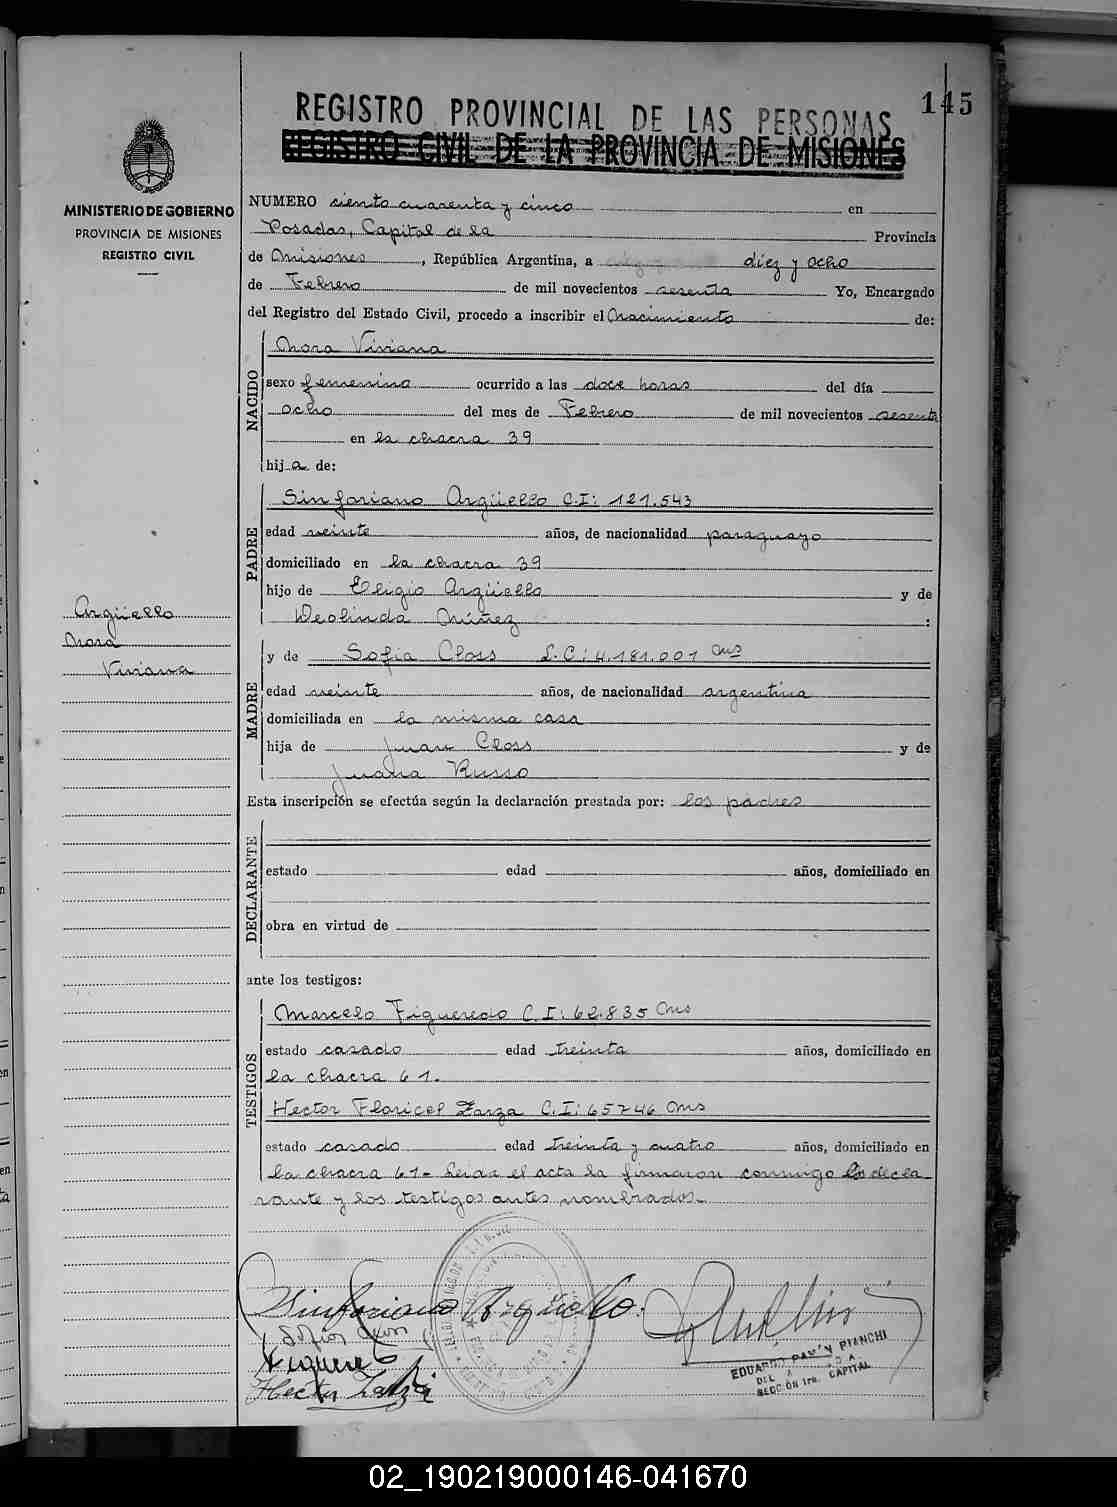 145
REGISTRO PROVINCIAL DE LAS PERSONAS
REGISTRO CIVIL DE LA PROVINCIA DE MISIONES
MINISTERIO DE GOBIERNO
PROVINCIA DE MISIONES
REGISTRO CIVIL
NUMERO ciento cuarenta y cinco en
Posadas, Capital de la Provincia
de Misiones, República Argentina, a diez y ocho
de Febrero de mil novecientos sesenta Yo, Encargado
del Registro del Estado Civil, procedo a inscribir el Nacimiento de:
NACIDO
Nora Viviana
sexo femenino ocurrido a las doce horas del día
ocho del mes de Febrero de mil novecientos sesenta
en la chacra 39
hija de:
PADRE
Sinforiano Argüello C.I: 121.543
edad veinte años, de nacionalidad paraguayo
domiciliado en la chacra 39
hijo de Eligio Argüello y de
Deolinda Núñez :
Argüello
Nora
Viviana
MADRE
y de Sofia Closs L.C: 4.181.001 Mns
edad veinte años, de nacionalidad argentina
domiciliada en la misma casa
hija de Juan Closs y de
Juana Russo
Esta inscripción se efectúa según la declaración prestada por: los padres
DECLARANTE
estado edad años, domiciliado en
obra en virtud de
ante los testigos:
TESTIGOS
Marcelo Figueredo C.I: 62.835 Mns
estado casado edad treinta años, domiciliado en
la chacra 61.
Hector Floricel Zarza C.I: 65746 Mns
estado casado edad treinta y cuatro años, domiciliado en
la chacra 61- Leida el acta la firmaron conmigo los decla-
rante y los testigos antes nombrados.-
Sinforiano Argüello.
Sofia
Figueredo
Hector Zarza
EDUARDO RAMÓN BIANCHI
DEL
SECCIÓN 1ra. CAPITAL
02_190219000146-041670